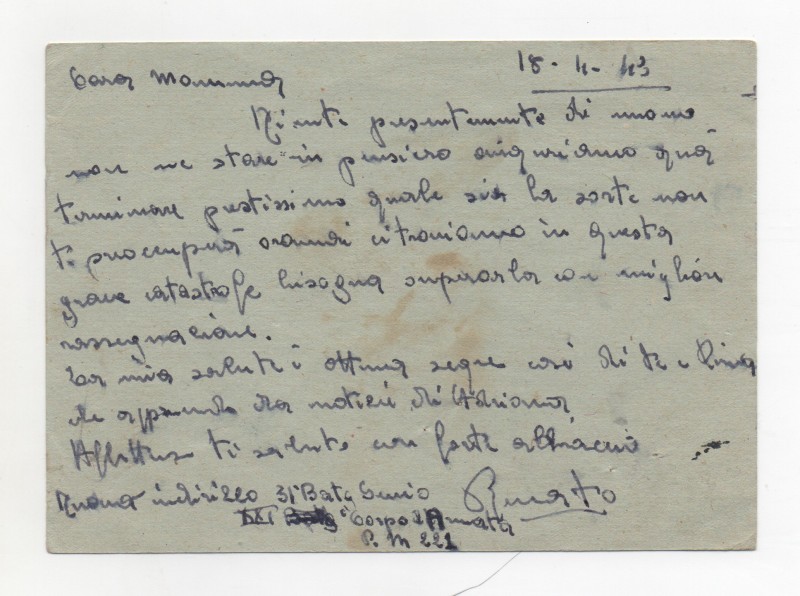 18-4-43
Cara Mamma
Niente presentemente di nuovo
non ne stare in pensiero auguriamo quà
terminare prestissimo quale sia la sorte non
ti preoccupuà oramai ci troviamo in questa
grave catastrofe bisogna superarla con miglior
rassegnazione.
La mia salute è ottima segue così di te e Pina
che apprendo da notizie di Adriana
Affettuso ti saluto con forte abbraccio
Nuovo indirizzo 31 Batg Genio Renato
XXI Corpo d'Armata
P. M 221